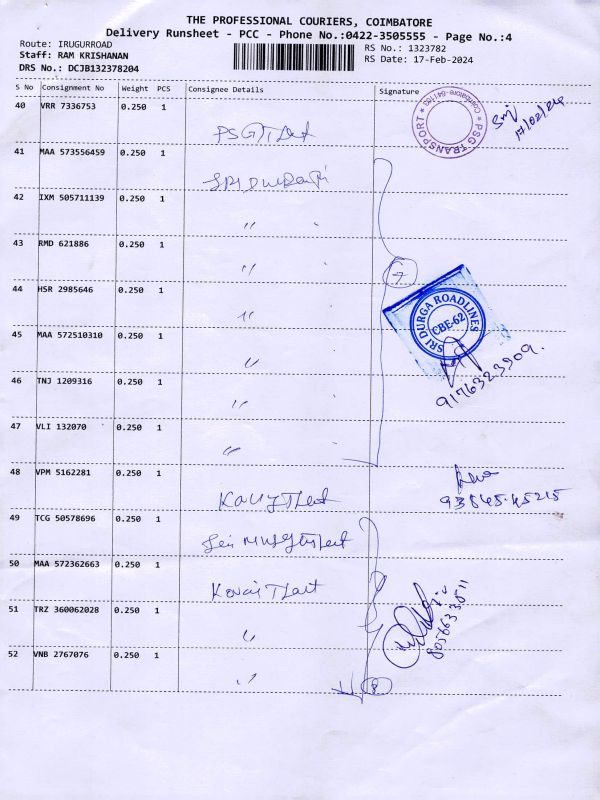 THE PROFESSIONAL COURIERS, COIMBATORE
Delivery Runsheet - PCC - Phone No.:0422-3505555 - Page No.:4
Route: IRUGURROAD
Staff: RAM KRISHANAN
DRS No.: DCJB132378204
RS No.: 1323782
RS Date: 17-Feb-2024
S No Consignment No Weight PCS Consignee Details Signature
40 VRR 7336753 0.250 1
PSG TLent
PSG TRANSPORT
17/02/24
41 MAA 573556459 0.250 1
SRI
42 IXM 505711139 0.250 1 〃
43 RMD 621886 0.250 1 〃
7
44 HSR 2985646 0.250 1 〃
SRI DURGA ROADLINES
CBE-62
45 MAA 572510310 0.250 1 〃
9176323909.
46 TNJ 1209316 0.250 1 〃
47 VLI 132070 0.250 1 〃
48 VPM 5162281 0.250 1
93645.45215
49 TCG 50578696 0.250 1
Sri
50 MAA 572362663 0.250 1
Kovai
8056633811
51 TRZ 360062028 0.250 1 〃
52 VNB 2767076 0.250 1 〃
8